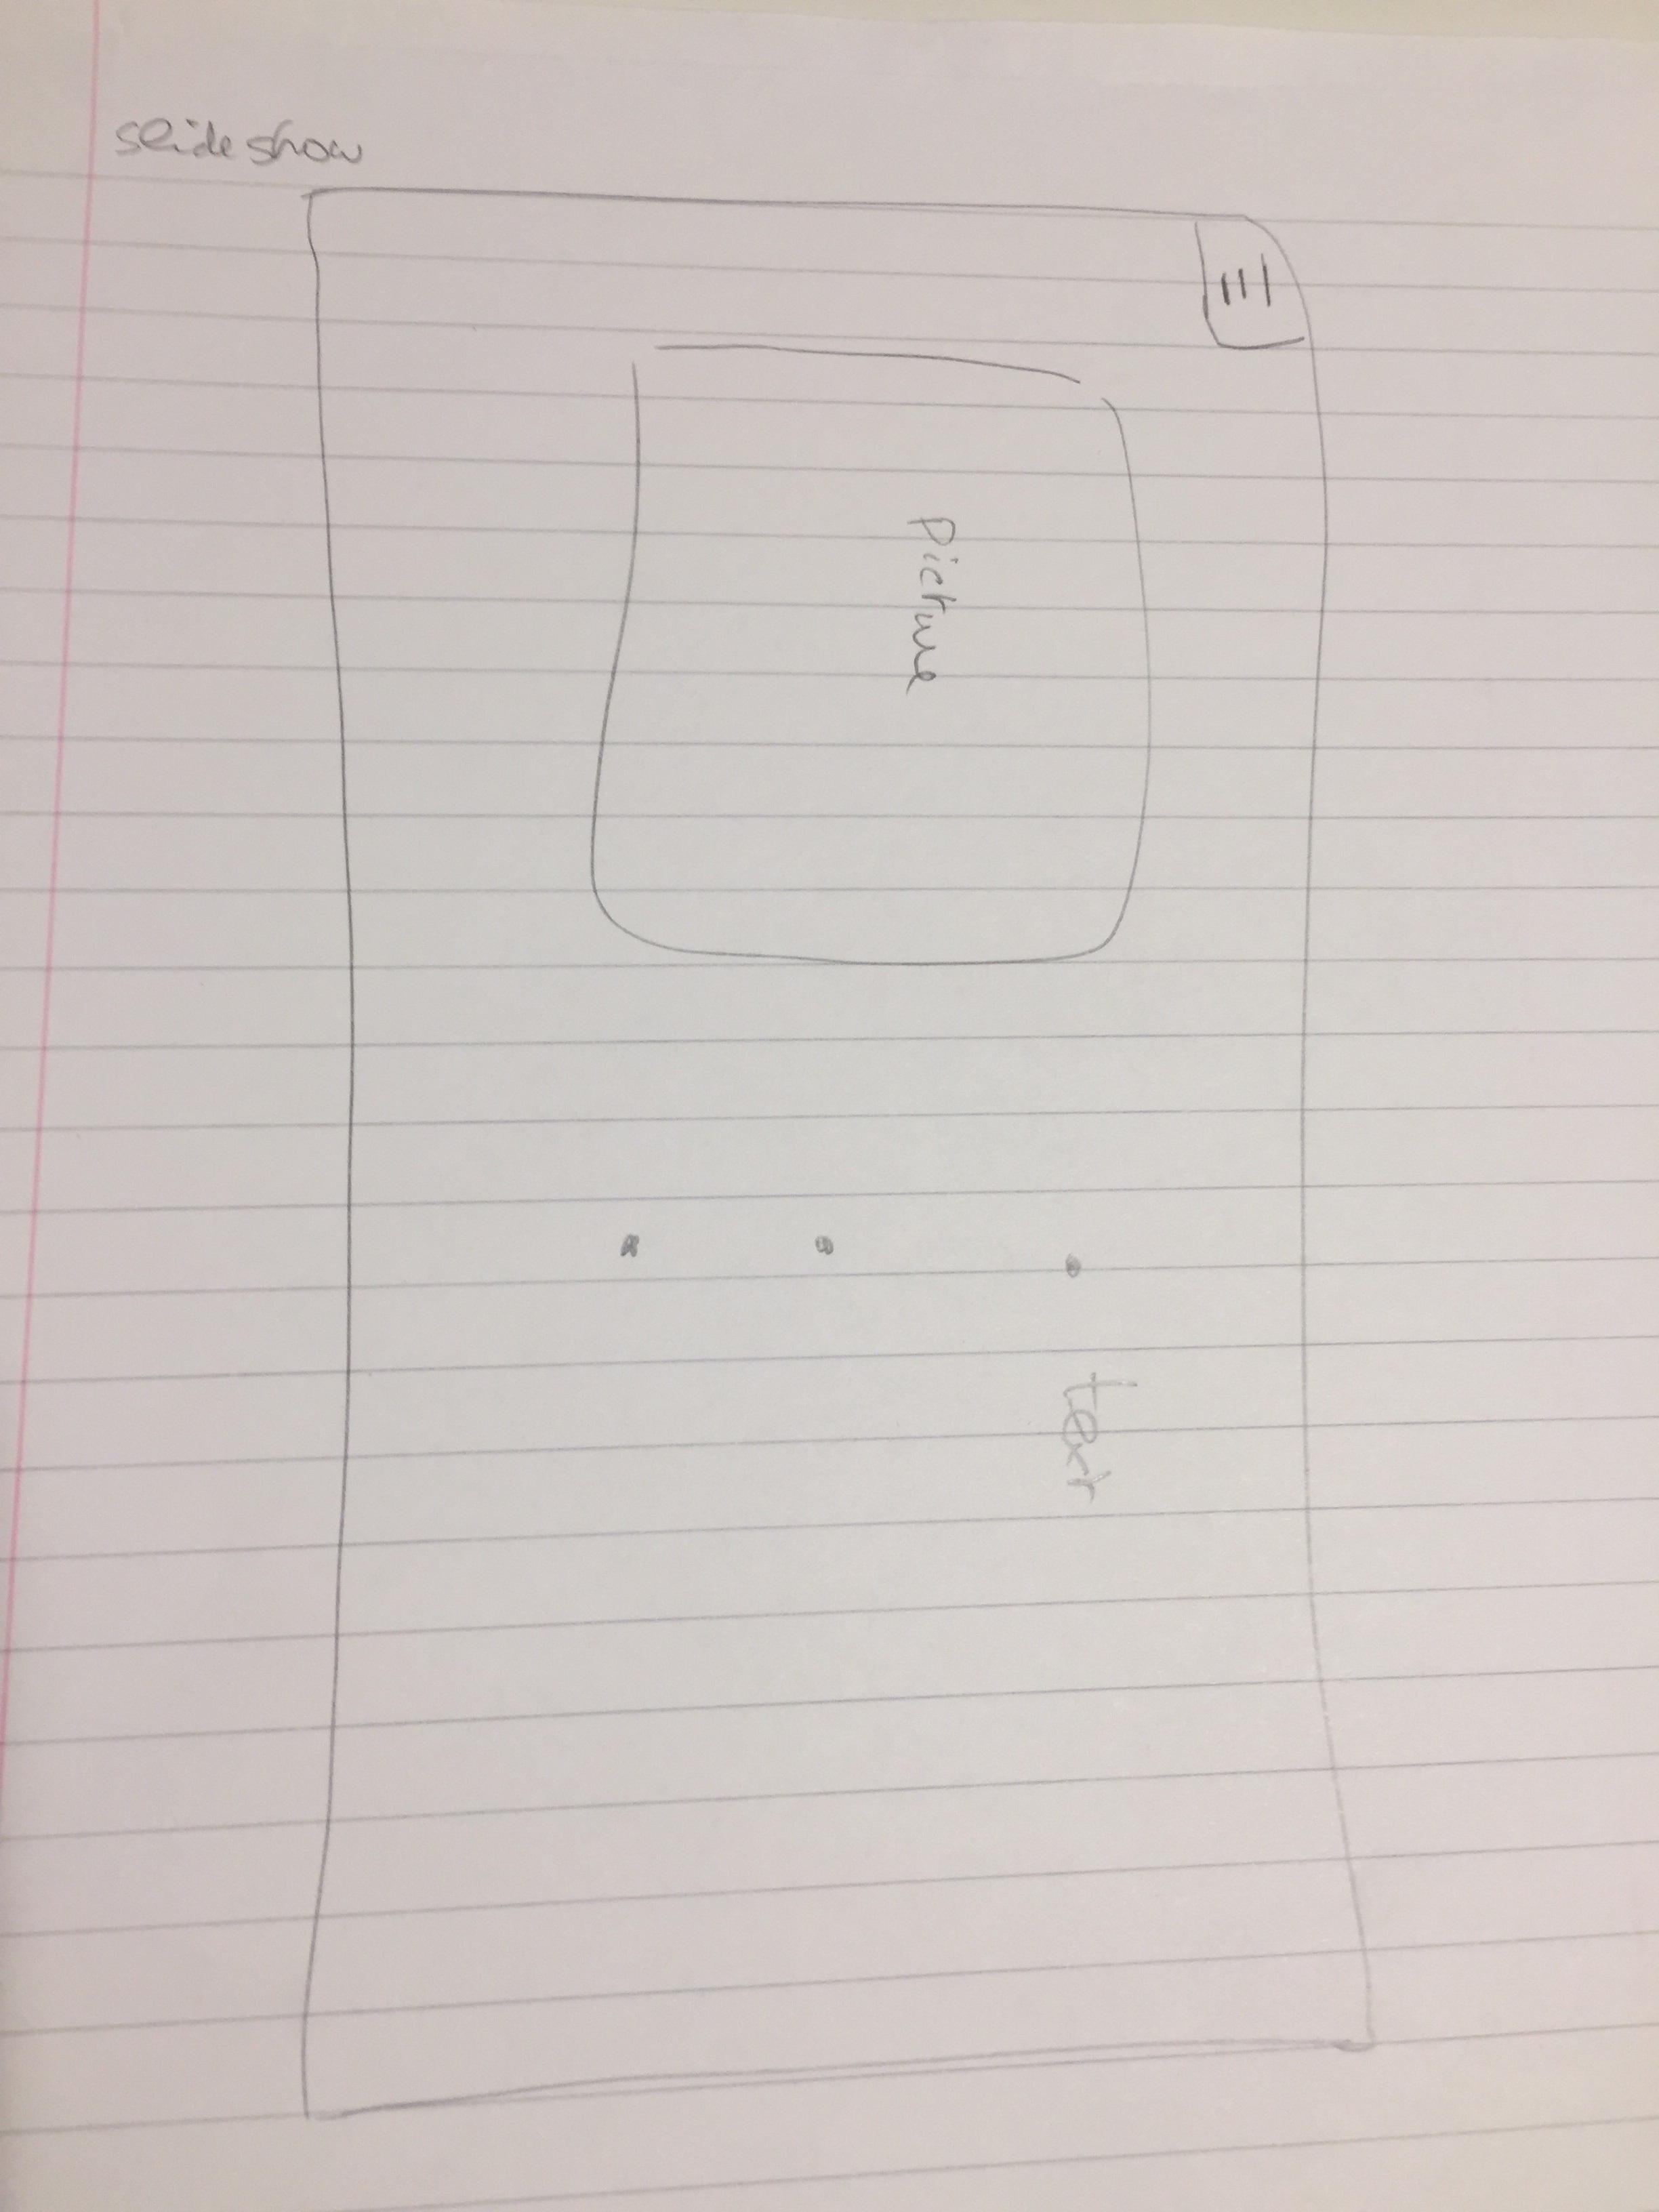 slide show
Picture
text